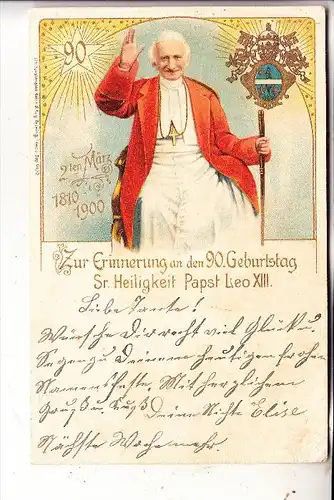 90
2ten März
1810
1900
Zur Erinnerung an den 90. Geburtstag
Sr. Heiligkeit Papst Leo XIII.
Liebe Tante!
Wünsche Dir recht viel Glück u.
Segen zu Deinem heutigen frohen
Namensfeste. Mit herzlichem
Gruß u. Kuß Deine Nichte Elise
Nächste Woche mehr.